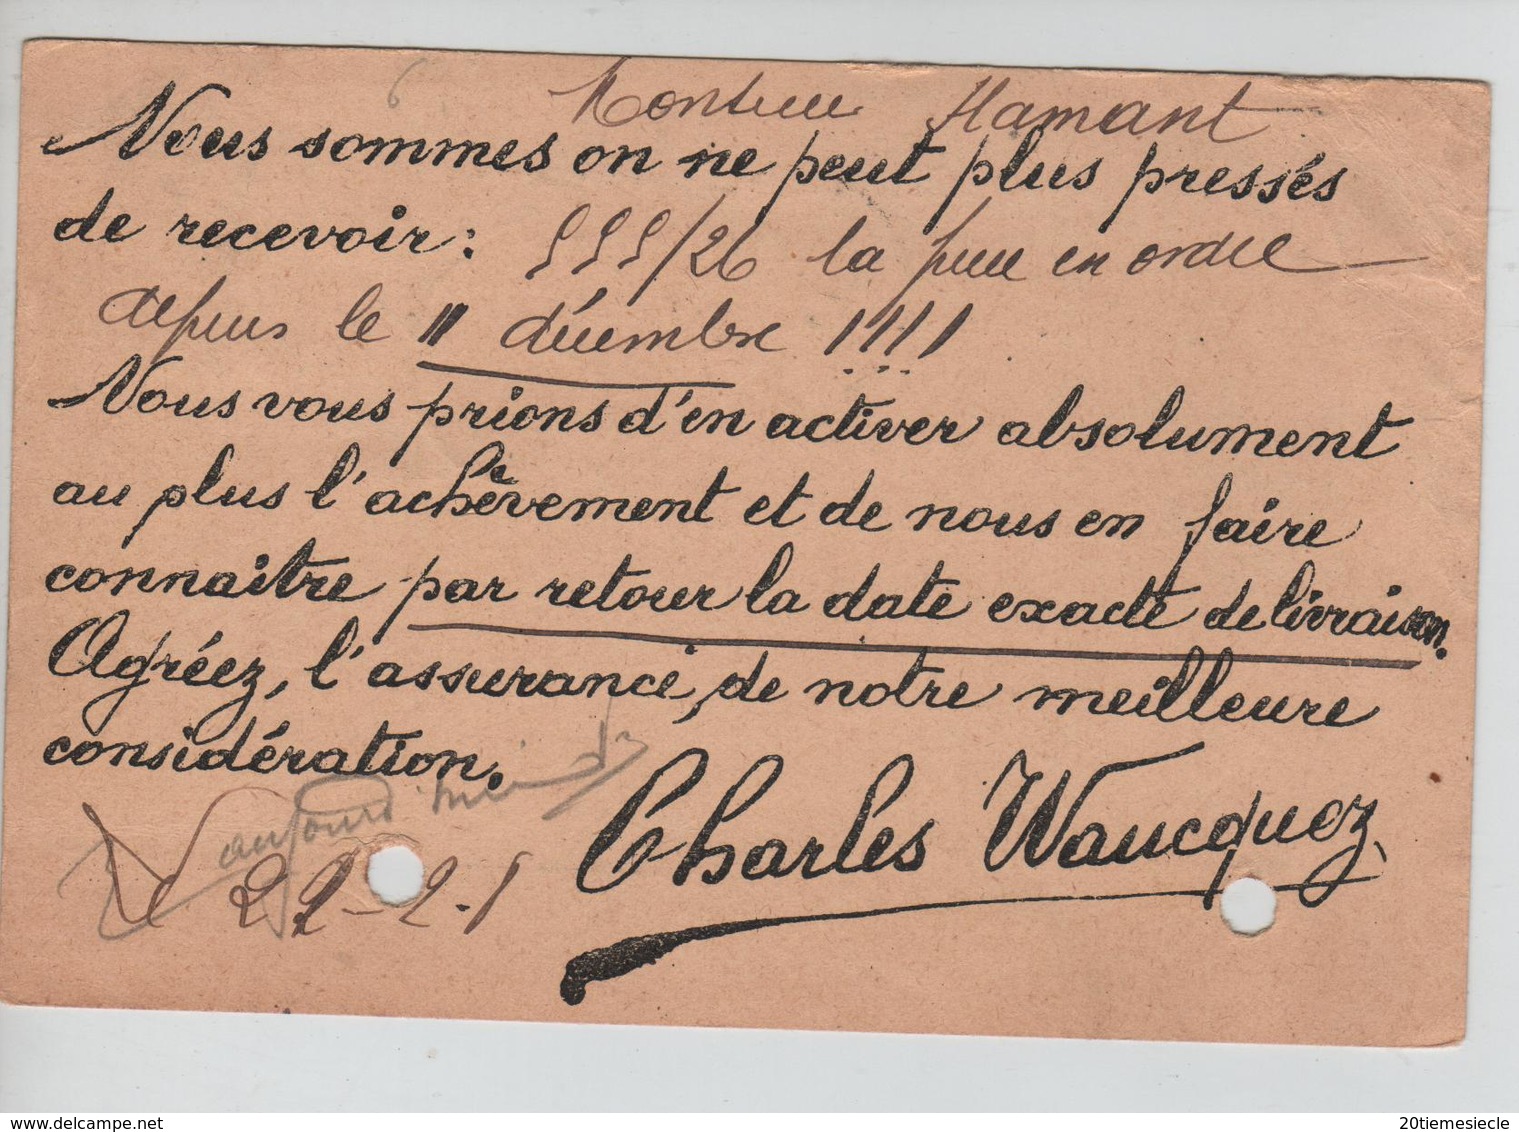 Monsieur Hamant
Nous sommes on ne peut plus pressés
de recevoir: 555/26 la pure en ordre
depuis le 11 décembre !!!!
Nous vous prions d'en activer absolument
au plus l'achèvement et de nous en faire
connaitre par retour la date exacte de livraison.
Agréez, l'assurance, de notre meilleure
considération.
Charles Waucquez
aujourd
22-2-1
20tiemesiecle